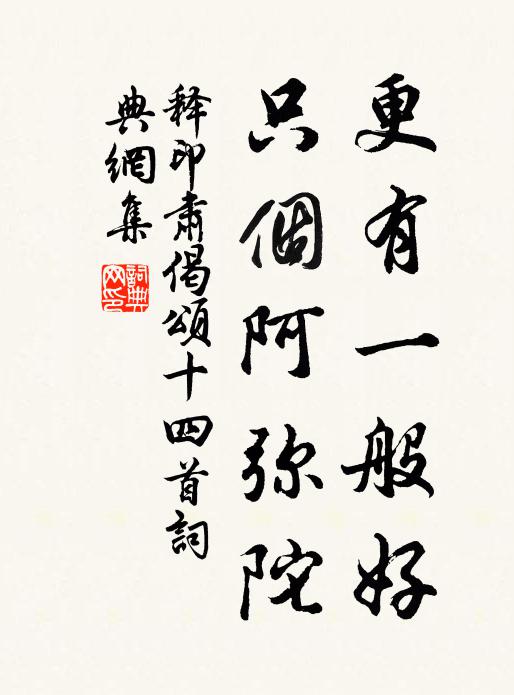 更有一般好
只個阿弥陀
释印肃偈頌十四首詞
典網集
詞典
网印